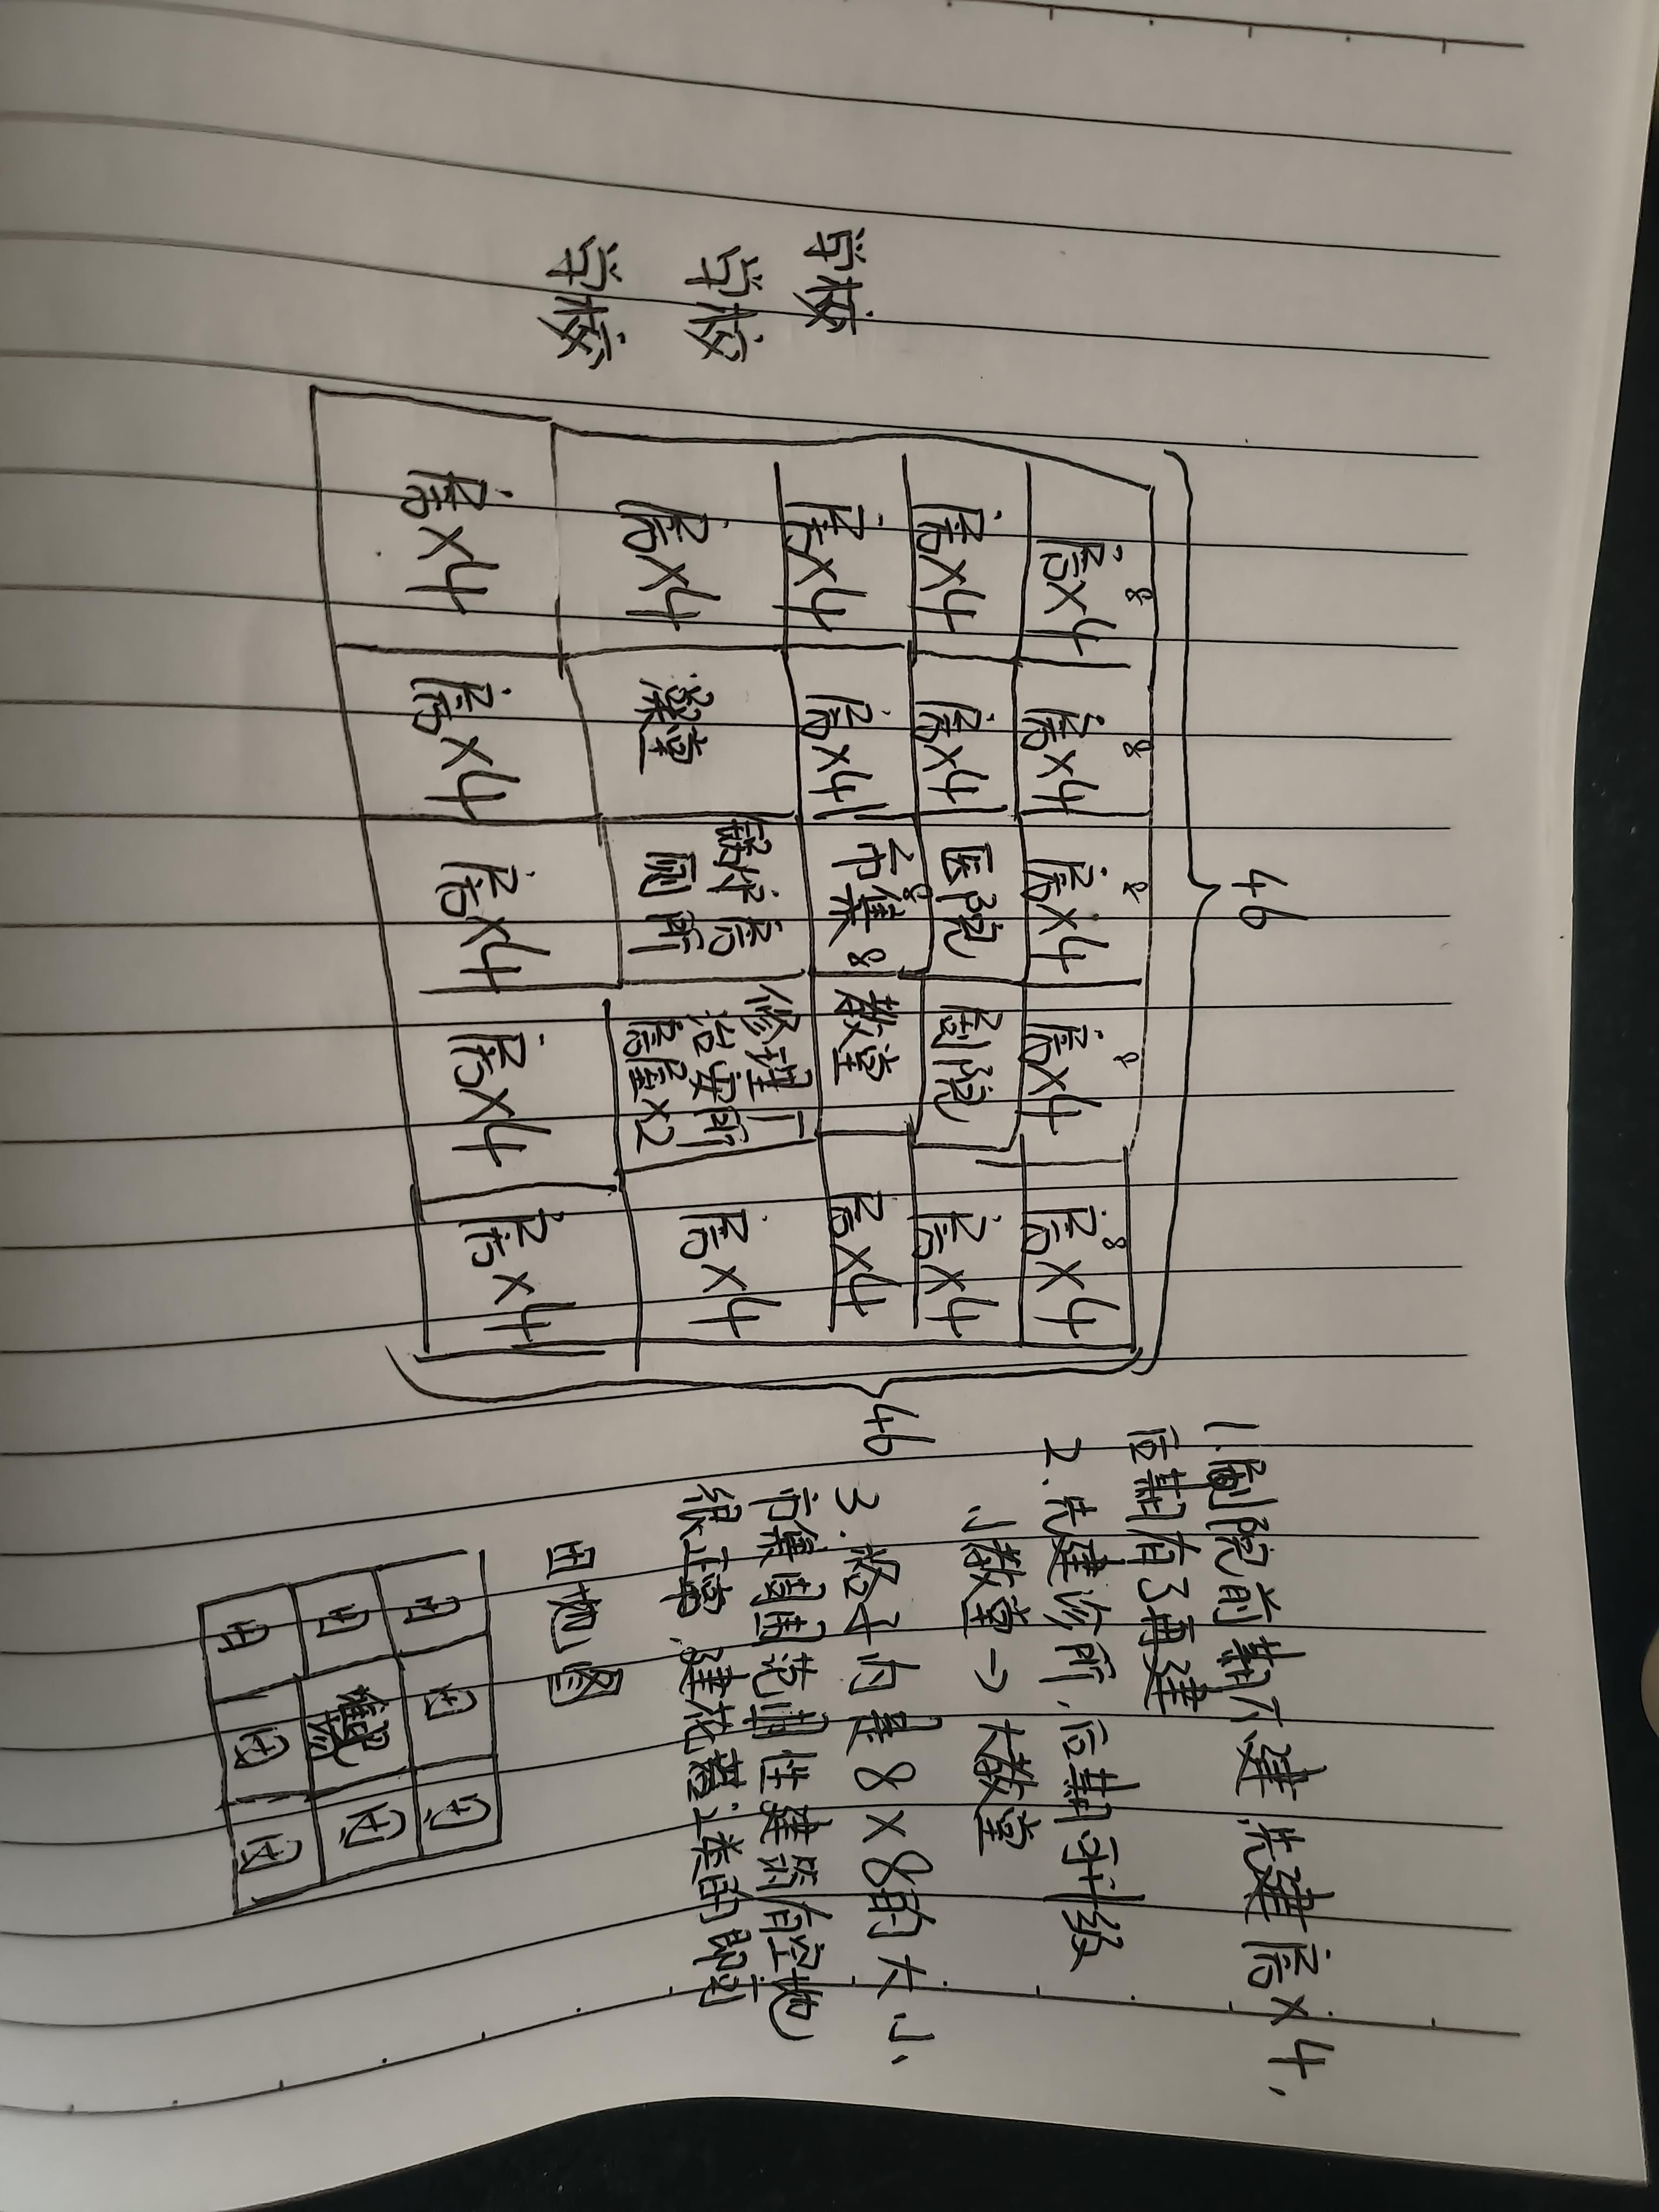 46
房×4 房×4 房×4 房×4 房×4
8 8 8 8 8
房×4 房×4 医院 剧院 房×4
房×4 房×4 市集 教堂 房×4
8 8
房×4 澡堂 房 修理 房×4
厕所 治安所
房屋×2
房×4 房×4 房×4 房×4 房×4
46
学校
学校
学校
1.剧院前期不建,先建房×4,
后期有了再建
2.先建诊所,后期升级
小教堂→大教堂
3.格子内是8×8的大小,
市集周围范围性建筑有空地
很正常,建花卷之类的即可
田地图
田 田 田
田 田
田 田 田